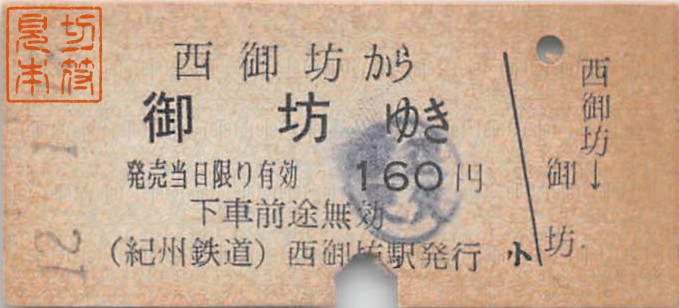 見本
切符
西御坊から
御坊ゆき
発売当日限り有効 160円
下車前途無効
(紀州鉄道) 西御坊駅発行
小
西御坊→
御坊